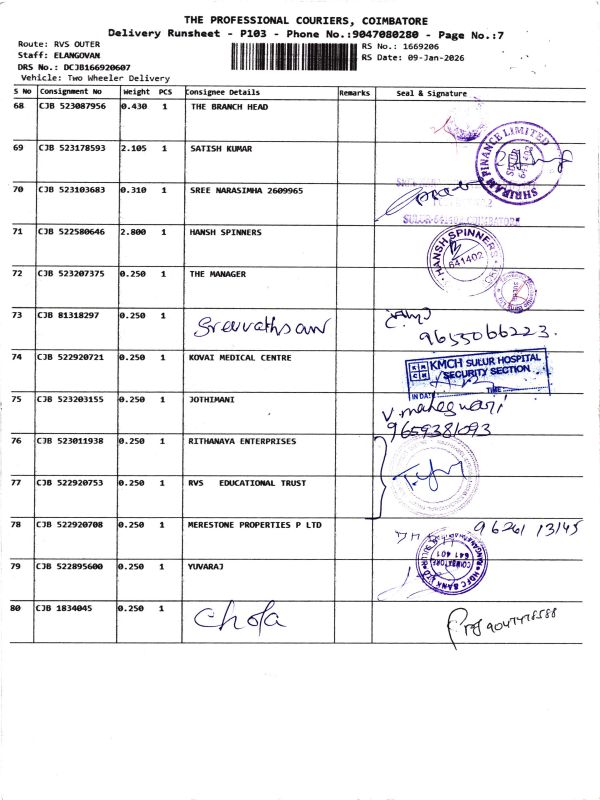 THE PROFESSIONAL COURIERS, COIMBATORE
Delivery Runsheet - P103 - Phone No.:9047080280 - Page No.:7
Route: RVS OUTER
Staff: ELANGOVAN
DRS No.: DCJB166920607
Vehicle: Two Wheeler Delivery
RS No.: 1669206
RS Date: 09-Jan-2026
S No Consignment No Weight PCS Consignee Details Remarks Seal & Signature
68 CJB 523087956 0.430 1 THE BRANCH HEAD
69 CJB 523178593 2.105 1 SATISH KUMAR
SHRIRAM FINANCE LIMITED
SULUR
641 402
70 CJB 523103683 0.310 1 SREE NARASIMHA 2609965
SULUR-641 402 COIMBATORE
71 CJB 522580646 2.800 1 HANSH SPINNERS
HANSH SPINNERS
641402
72 CJB 523207375 0.250 1 THE MANAGER
73 CJB 81318297 0.250 1 Sreevathsan
9655066223
74 CJB 522920721 0.250 1 KOVAI MEDICAL CENTRE
KMCH SULUR HOSPITAL
SECURITY SECTION
IN DATE TIME
75 CJB 523203155 0.250 1 JOTHIMANI
V. maheswari
9659381093
76 CJB 523011938 0.250 1 RITHANAYA ENTERPRISES
77 CJB 522920753 0.250 1 RVS EDUCATIONAL TRUST
78 CJB 522920708 0.250 1 MERESTONE PROPERTIES P LTD 96261 13145
79 CJB 522895600 0.250 1 YUVARAJ
HDFC BANK LTD
COIMBATORE
641 401
80 CJB 1834045 0.250 1 Chola
9047478588